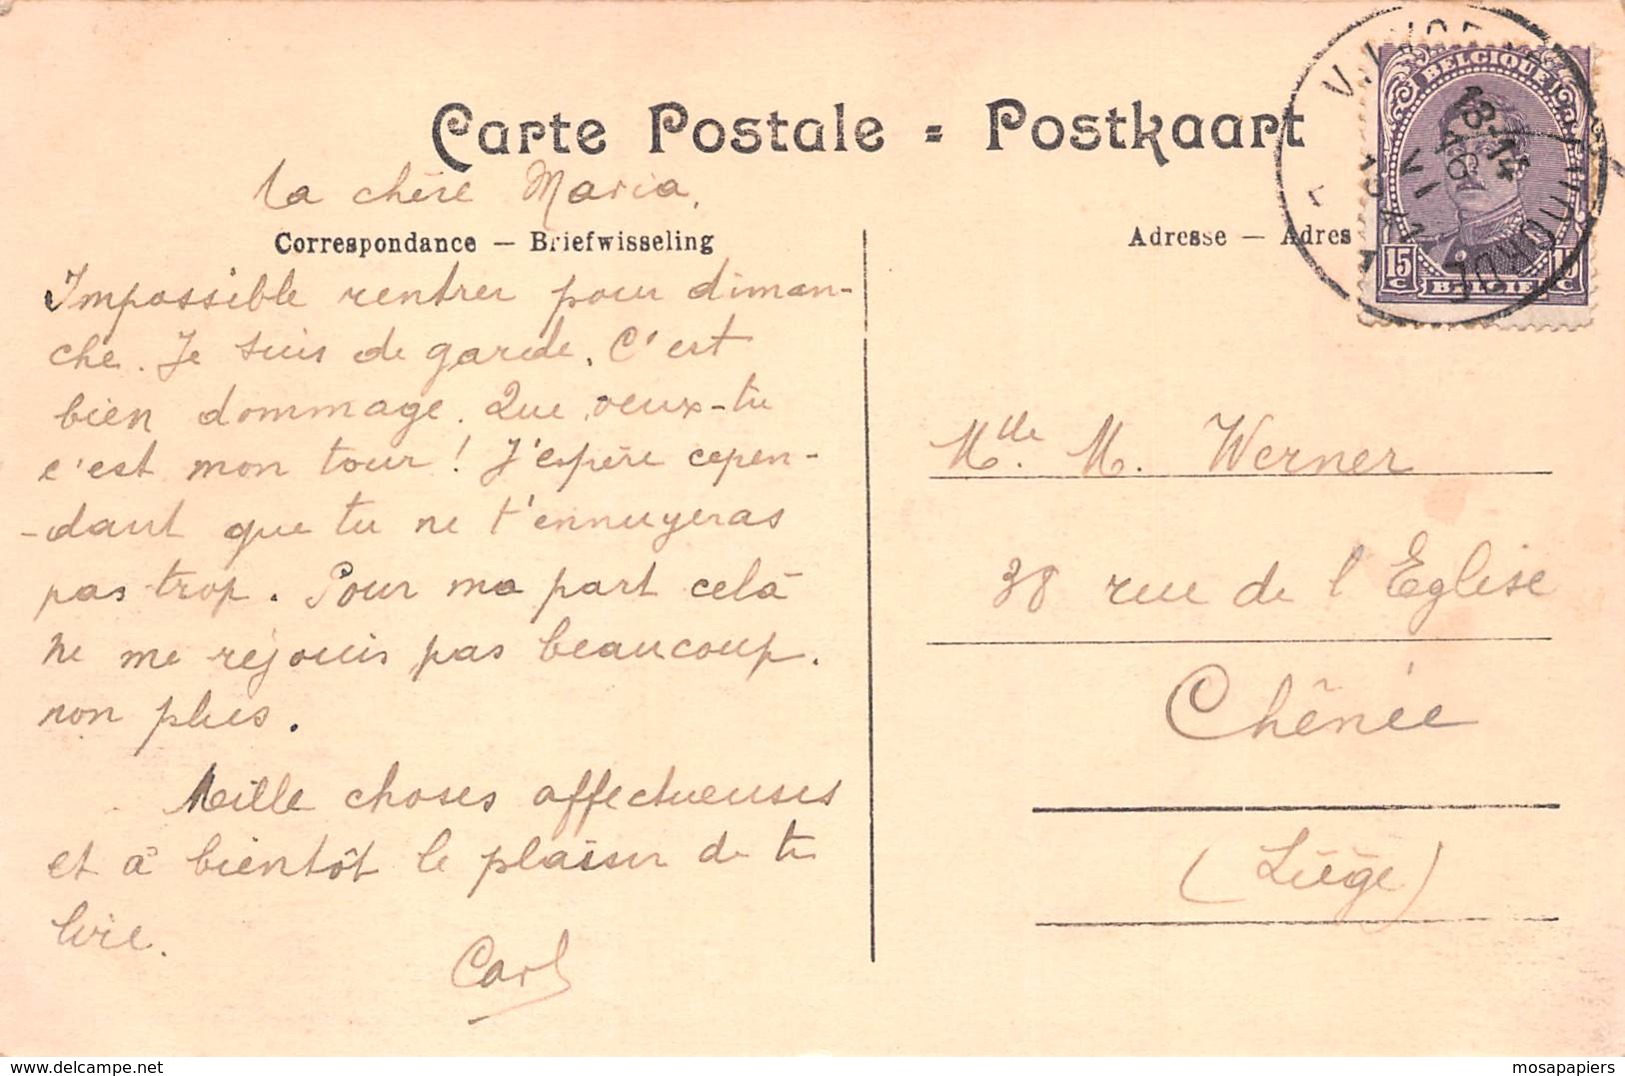 Carte Postale = Postkaart
Ma chère Maria,
Correspondance — Briefwisseling
Impossible rentrer pour diman-
che. Je suis de garde. C'est
bien dommage. Que veux-tu
c'est mon tour ! J'espère cepen-
-dant que tu ne t'ennuyeras
pas trop. Pour ma part celà
ne me réjouis pas beaucoup.
non plus.
Mille choses affectueuses
et à bientôt le plaisir de te
lire.
Carl
Adresse — Adres
BELGIQUE
15 C
BELGIE
15 C
VILVORDE
13-14
VI
Mlle. M. Werner
38 rue de l'Eglise
Chênée
(Liège)
mosapapiers